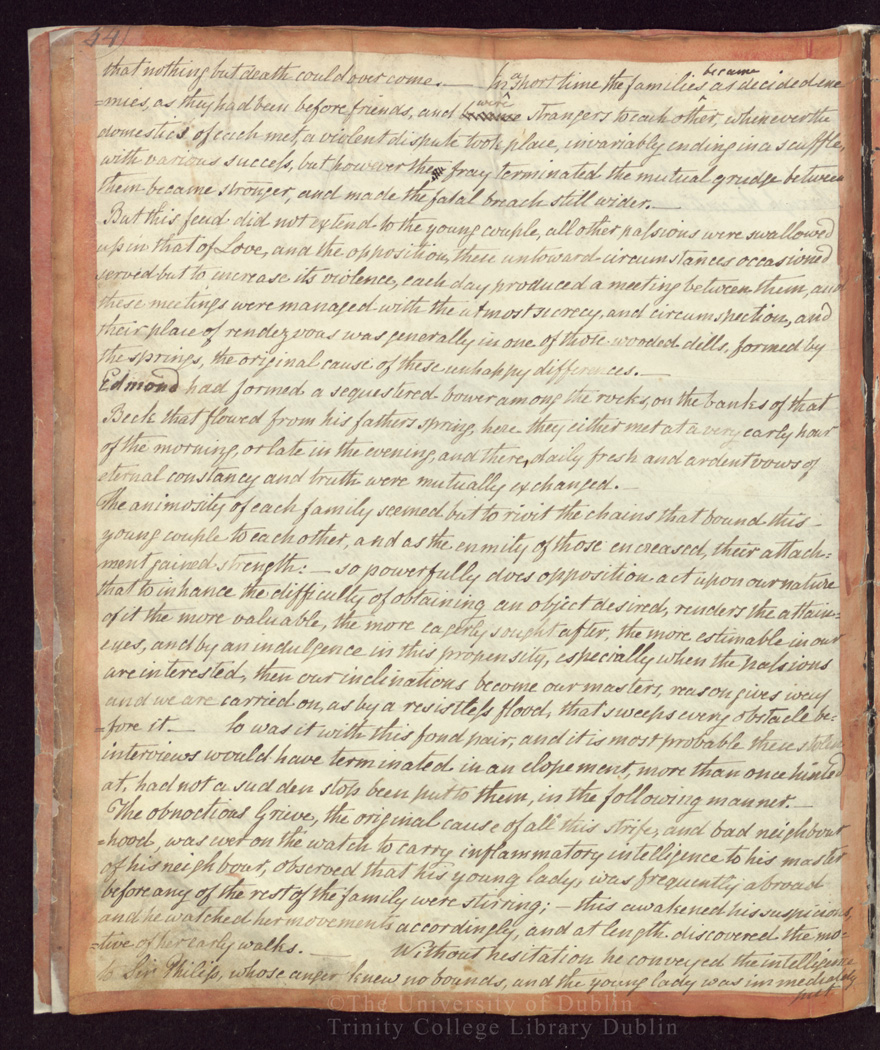 34)
that nothing but death could over come. — In a short time the families became as decided ene
=mies, as they had been before friends, and were strangers to each other, whenever the
domestics of each met, a violent dispute took place, invariably ending in a scuffle,
with various success, but however the fray terminated the mutual grudge between
them became stronger, and made the fatal breach still wider. —
But this feud did not extend to the young couple, all other passions were swallowed
up in that of Love, and the opposition, these untoward circumstances occasioned
served but to increase its violence, each day produced a meeting between them, and
these meetings were managed with the utmost secrecy, and circumspection, and
their place of rendezvoas was generally in one of those wooded dells, formed by
the springs, the original cause of these unhappy differences. —
Edmond had formed a sequestered bower among the rocks, on the banks of that
Beck that flowed from his fathers spring, here they either met at a very early hour
of the morning, or late in the evening, and there, daily fresh and ardent vows of
eternal constancy and truth were mutually exchanged. —
The animosity of each family seemed but to rivit the chains that bound this
young couple to each other, and as the enmity of those encreased, their attach=
ment gained strength: — so powerfully does opposition act upon our nature
that to inhance the difficulty of obtaining an object desired, renders the attain=
of it the more valuable, the more eagerly sought after, the more estimable in our
eyes, and by an indulgence in this propensity, especially when the passions
are interested, then our inclinations become our masters, reason gives way
and we are carried on, as by a resistless flood, that sweeps every obstacle be=
=fore it. — So was it with this fond pair, and it is most probable these stolen
interviews would have terminated in an elopement, more than once hinted
at, had not a sudden stop been put to them, in the following manner. —
The obnoctious Grieve, the original cause of all this strife, and bad neighbour
=hood, was ever on the watch to carry inflammatory intelligence to his master
of his neighbour, observed that his young lady, was frequently abroad
before any of the rest of the family were stirring; — this awakened his suspicions,
and he watched her movements accordingly, and at length discovered the mo=
=tive of her early walks. — Without hesitation he conveyed the intelligence
to Sir Philip, whose anger knew no bounds, and the young lady was immediately
put
©The University of Dublin
Trinity College Library Dublin